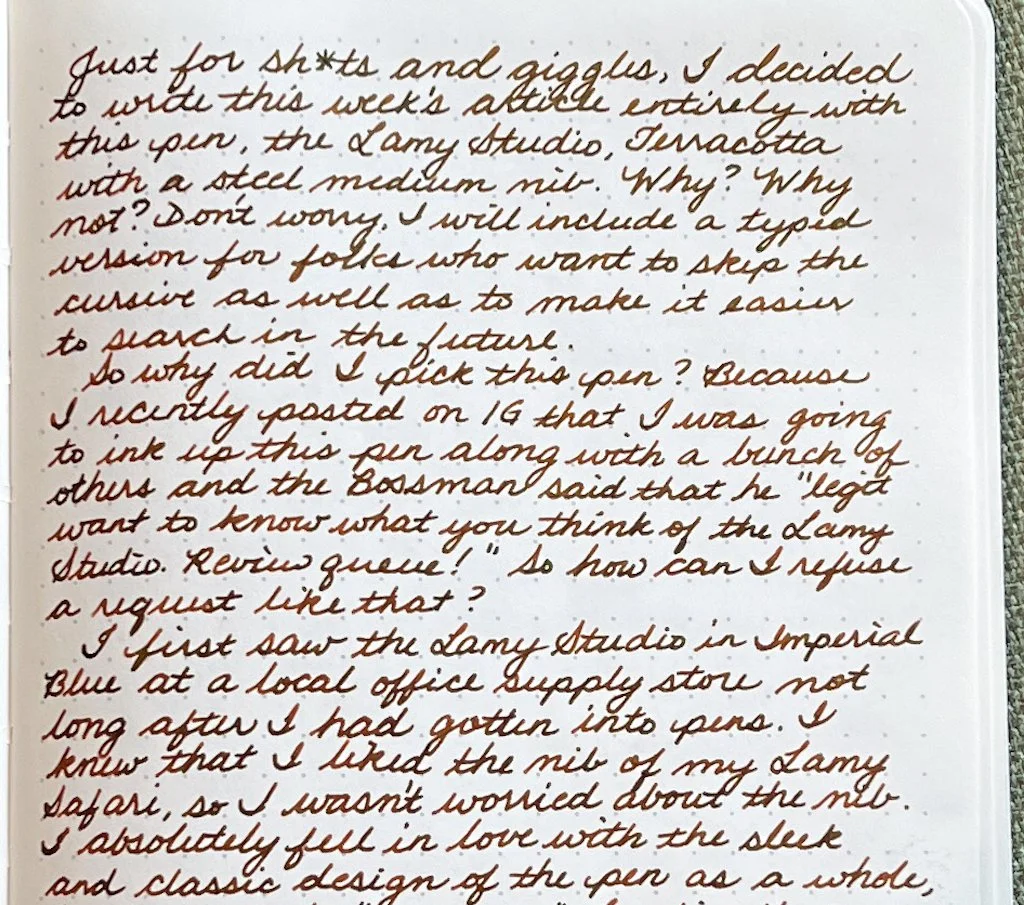 Just for sh*ts and giggles, I decided
to write this week's article entirely with
this pen, the Lamy Studio, Terracotta
with a steel medium nib. Why? Why
not? Don't worry, I will include a typed
version for folks who want to skip the
cursive as well as to make it easier
to search in the future.
So why did I pick this pen? Because
I recently posted on IG that I was going
to ink up this pen along with a bunch of
others and the Bossman said that he "legit
want to know what you think of the Lamy
Studio. Review queue!" So how can I refuse
a request like that?
I first saw the Lamy Studio in Imperial
Blue at a local office supply store not
long after I had gotten into pens. I
knew that I liked the nib of my Lamy
Safari, so I wasn't worried about the nib.
I absolutely fell in love with the sleek
and classic design of the pen as a whole,